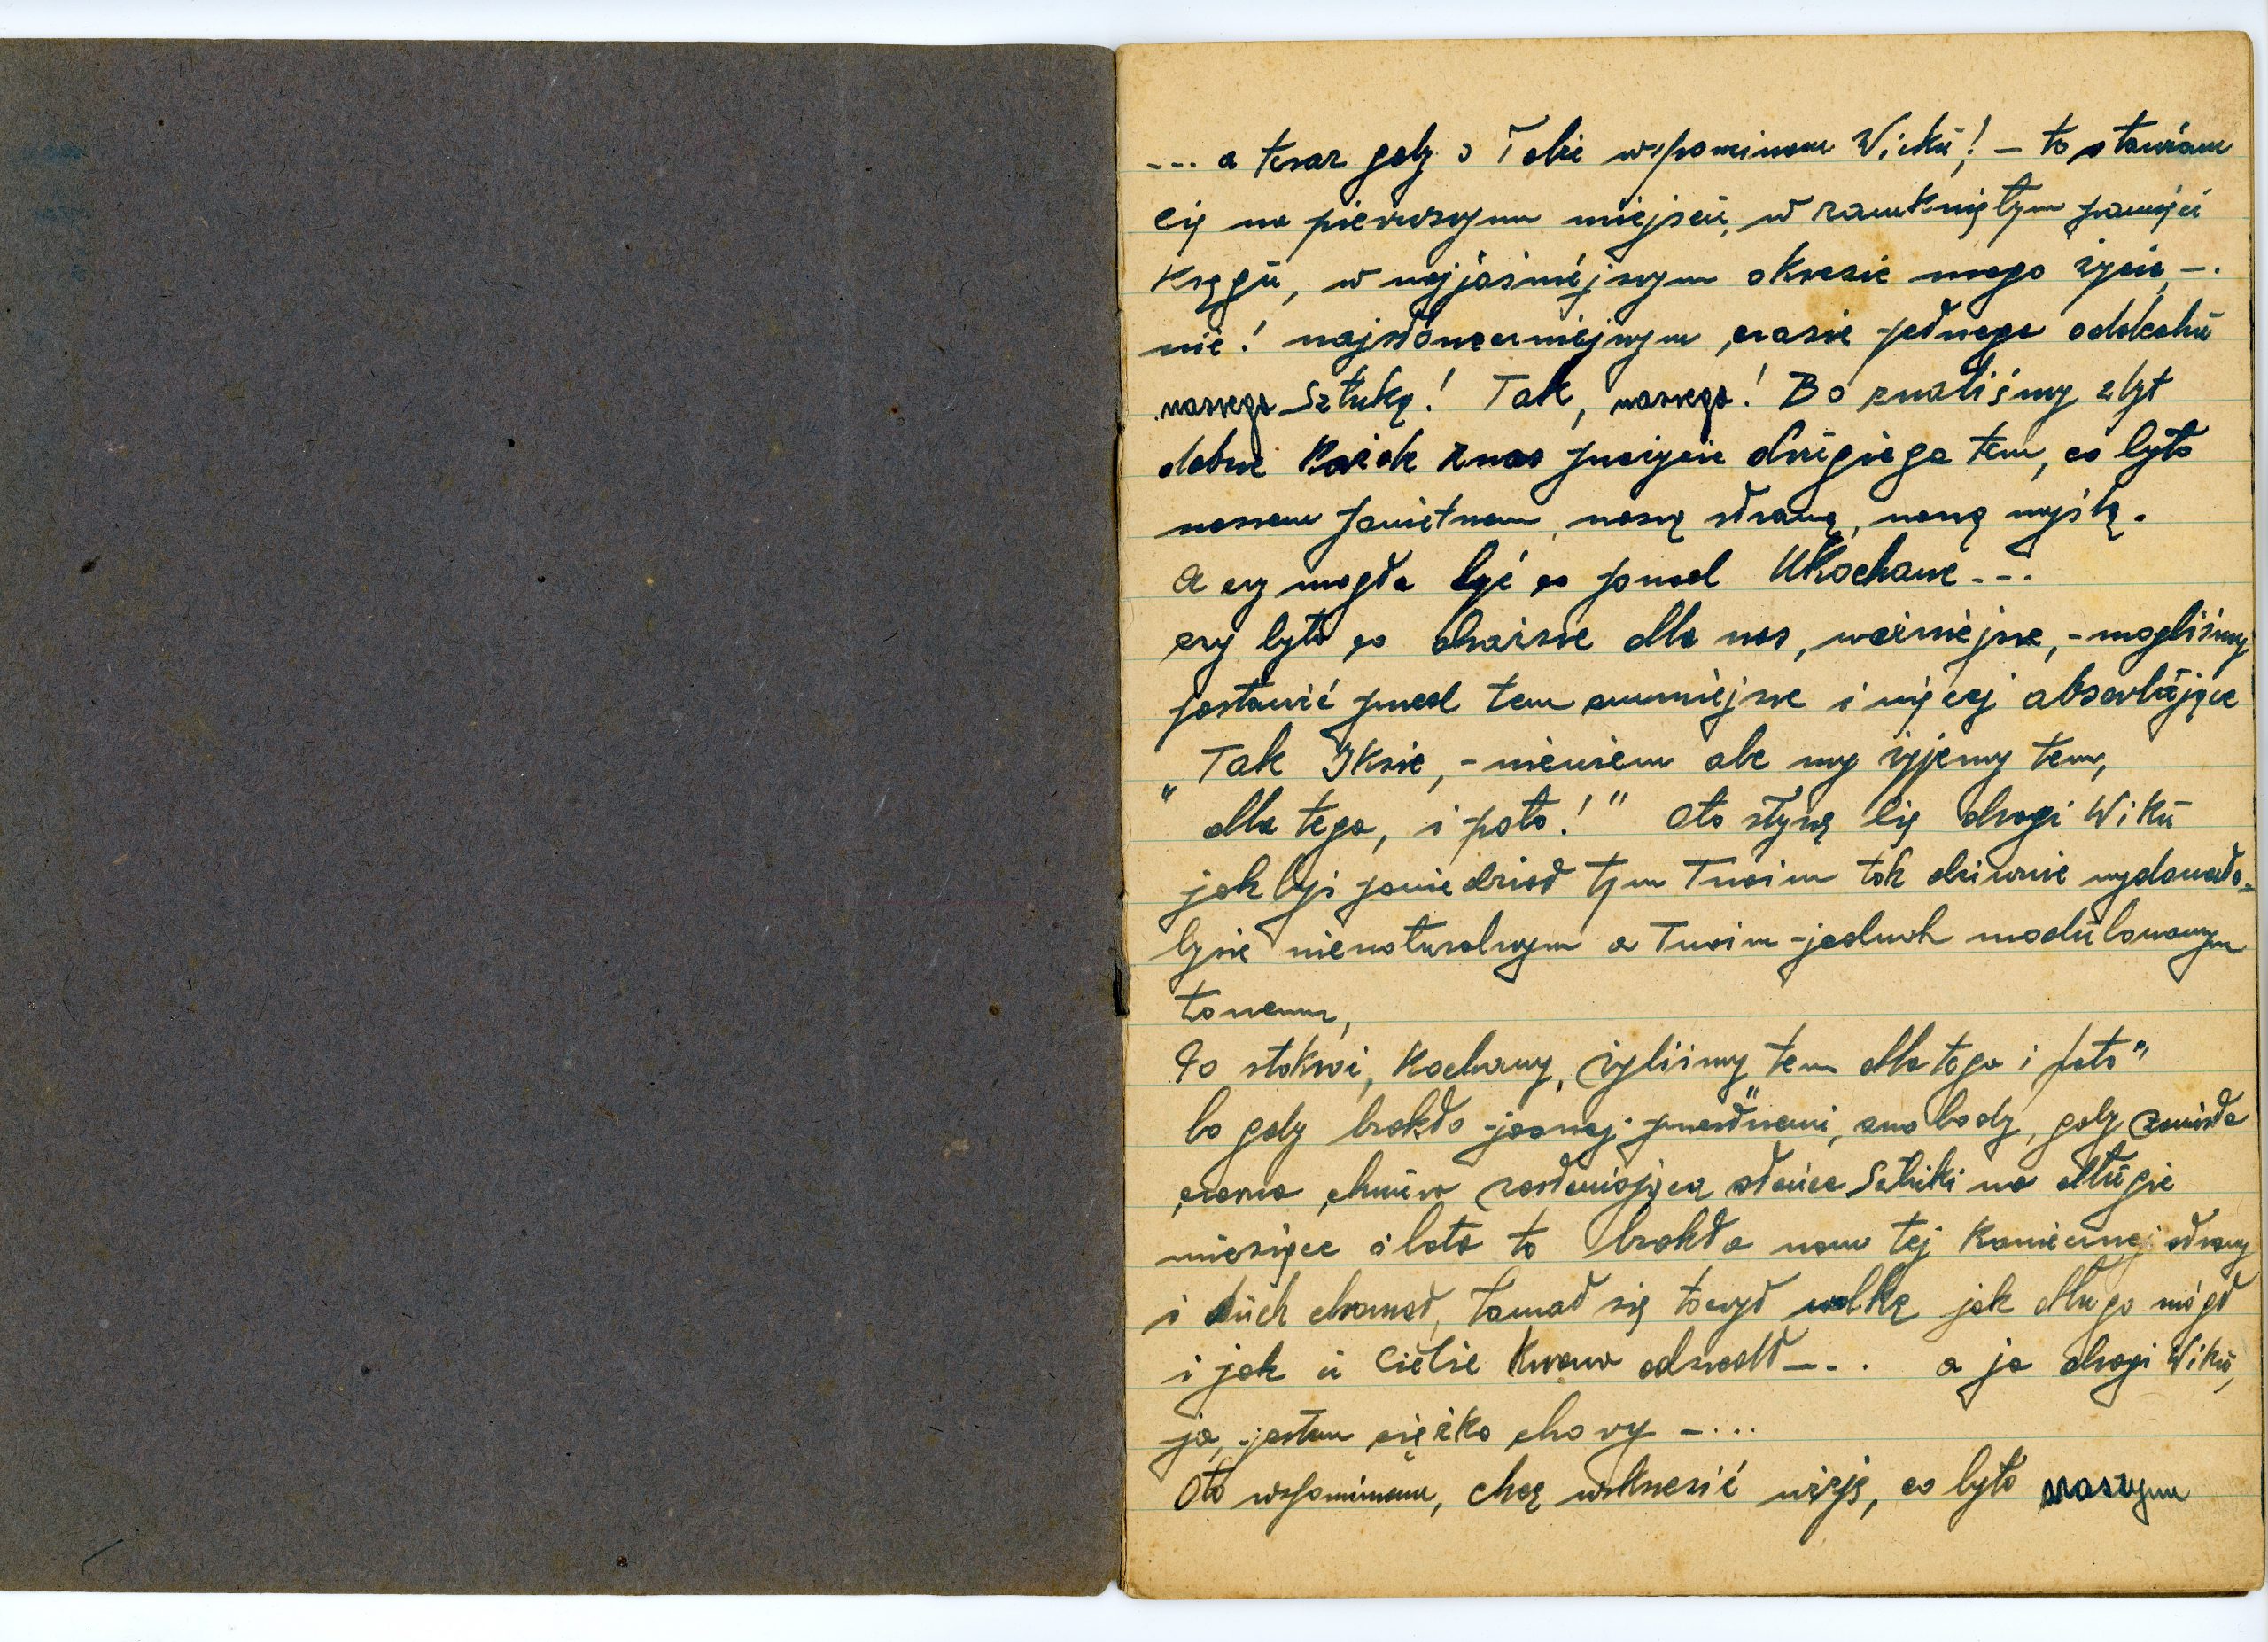 --- a teraz gdy o Tobie wspominam Wiku! - to stawiam
cię na pierwszym miejscu, w zamkniętym pamięci
Kręgu, w najjaśniejszym okresie mego życia -.
nie! najsłoneczniejszym czasie jednego oddechu
naszego Sztuką! Tak, naszego! Bo znaliśmy zbyt
dobrze każde z nas przeżycie drugiego tem, co było
naszem powietrzem, naszą strawą, naszą myślą.
A czy mogło być co ponad Ukochane ---
czy było co droższe dla nas, ważniejsze, - mogliśmy
postawić przed tem cenniejsze i więcej absorbujące
"Tak Iksie, - niewiem ale my żyjemy tem,
dla tego, i poto!" Oto słyszę Cię drogi Wiku
jak byś powiedział tym Twoim tak dziwnie wydawało-
by się nienaturalnym a Twoim jednak modulowanym
tonem,
To stokroć, Kochany, żyliśmy "tem dla tego i poto"
bo gdy brakło jasnej przestrzeni, swobody, gdy zawisła
czarna chmura zasłaniająca słońce Sztuki na długie
miesiące i lata to brakło nam tej Koniecznej strawy
i duch chromał, łamał się toczył walkę jak długo mógł
i jak u Ciebie krwawo odszedł --. a ja drogi Wiku,
ja, jestem ciężko chory - ...
Oto wspominam, chcę wskrzesić wizję, co było naszym